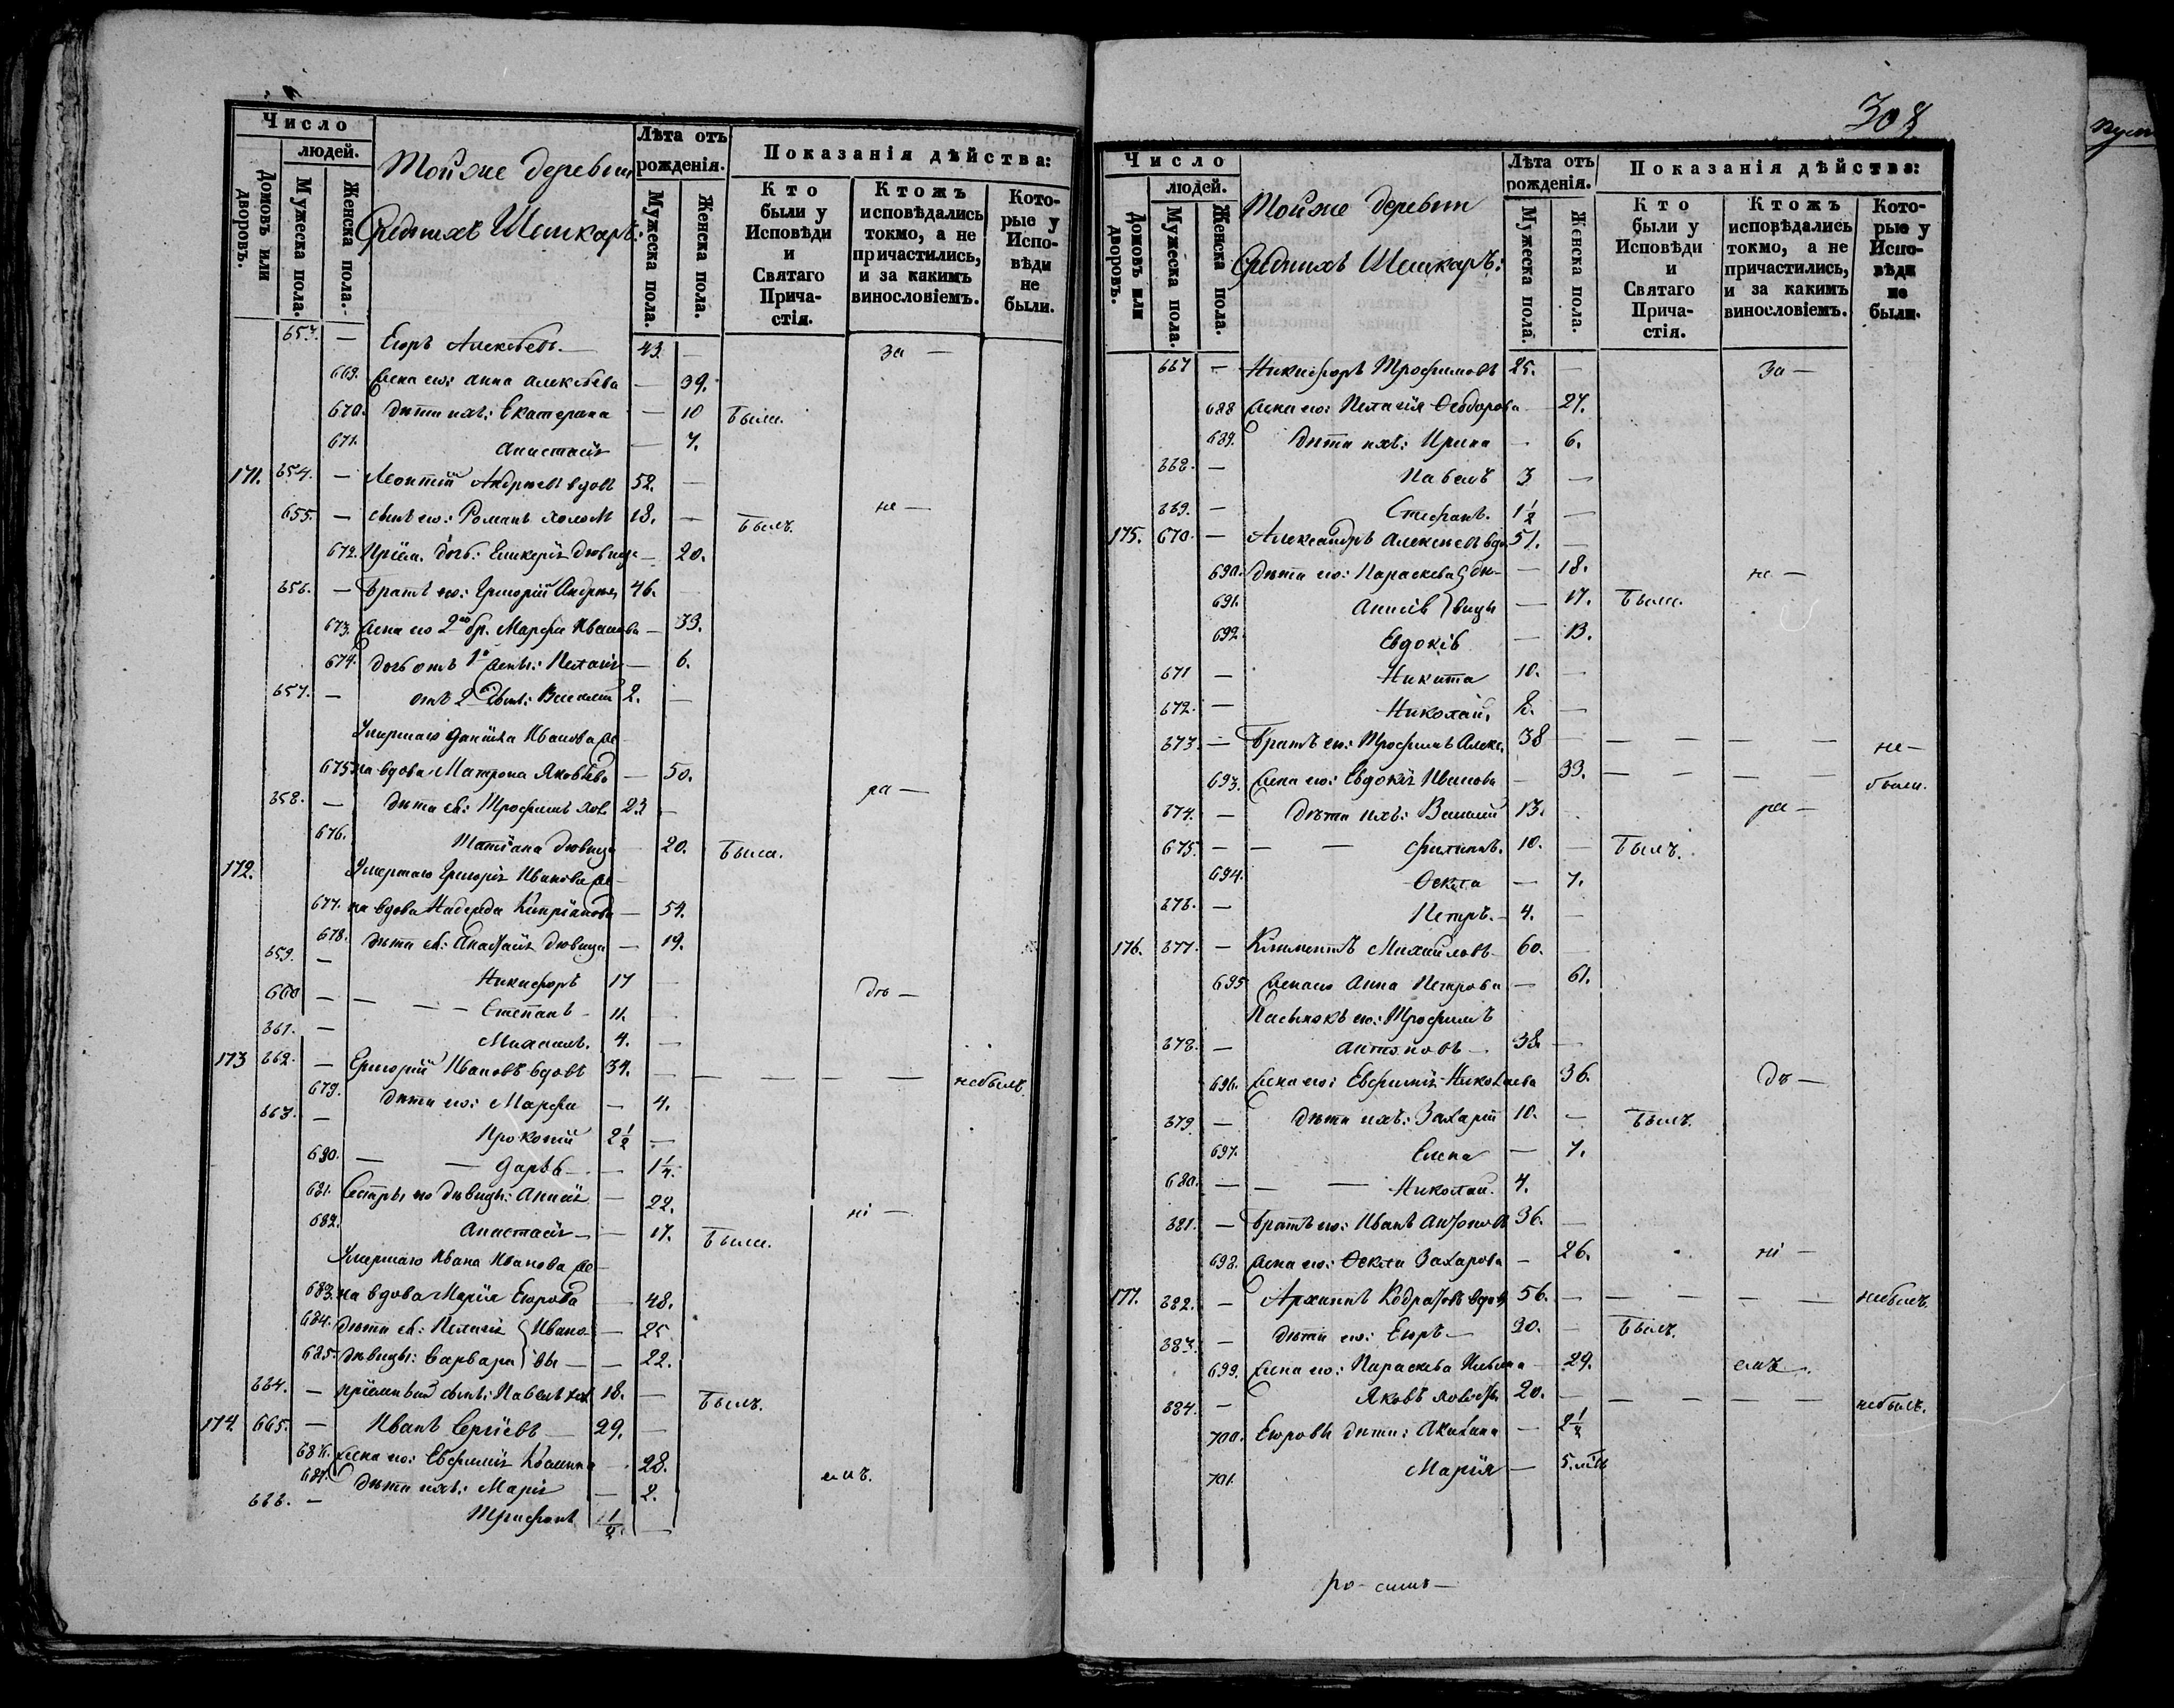 Число
людей.
Домовъ или дворовъ.
Мужеска пола.
Женска пола.
Тойже деревни
Среднихъ Шешкаръ:
Лѣта отъ рожденія.
Мужеска пола.
Женска пола.
Показанія дѣйства:
Кто были у Исповѣди и Святаго Причастія.
Ктожъ исповѣдались токмо, а не причастились, и за какимъ винословіемъ.
Которые у Исповѣди не были.
653. — Егоръ Алексѣевъ — 43. — за —
669. Жена его: Анна Алексѣева — 39.
670. Дѣти ихъ: Екатерина — 10 Были.
671. Анастасія — 7.
171. 654. — Леонтій Андреевъ вдовъ 52. —
655. — сынъ его: Романъ холост 18. — Былъ. не —
672. Пріем. дочь: дѣвица — 20.
656. — Братъ его: Григорій Андреевъ 46. —
673. Жена его 2го бр. Марфа Иванова — 33.
674. Дочь отъ 1й жены: Пелагія — 6.
657. — отъ 2й сынъ: Василій 2. —
Умершаго Даніила Иванова же-
675. на вдова Матрона Яковлева — 50.
658. — Дѣти ея: Трофимъ хол 23 — ра —
676. Татіана дѣвица 20. Была.
172. Умершаго Григорія Иванова же-
677. на вдова Надежда Кипріанова — 54.
678. Дѣти ея: Анастасія дѣвица — 19.
659. — Никифоръ 17 —
660 — — — Степанъ — 11. дѣ —
661. — Михаилъ. 4. —
173 662. — Григорій Ивановъ вдовъ 34. — — — — — — небылъ.
679. Дѣти его: Марфа — 4.
663. — Прокопій 2 1/2 —
680. — — Дарья — — 1 1/4.
681. Сестры его дѣвицы: Анисія — 22. ні —
682. Анастасія — — 17. Были.
Умершаго Ивана Иванова же-
683. на вдова Марія Егорова — 48.
684. Дѣти ея: Пелагія } Ивано- — 25
685. дѣвицы: Варвара } вы — — 22.
664. — пріемный сынъ: Павелъ хол 18. — Былъ.
174. 665. — Иванъ Сергѣевъ — 29. —
686. Жена его: Евфимія 28.
687. Дѣти ихъ: Марія — 2. емъ.
666. — Трифонъ 1/2. —
308
Число
людей.
Домовъ или дворовъ.
Мужеска пола.
Женска пола.
Тойже деревни
Среднихъ Шешкаръ:
Лѣта отъ рожденія.
Мужеска пола.
Женска пола.
Показанія дѣйства:
Кто были у Исповѣди и Святаго Причастія.
Ктожъ исповѣдались токмо, а не причастились, и за какимъ винословіемъ.
Которые у Исповѣди не были.
667 — Никифоръ Трофимовъ 25. — за —
688 Жена его: Пелагія Ѳеодорова — 27.
689. Дѣти ихъ: Ирина — 6.
668. — Павелъ 3 —
669. — Стефанъ. 1 1/2 —
175. 670. — Александръ Алексѣевъ вдо 51. —
690. Дѣти его: Параскева } дѣ- — 18. не —
691. Анисія } вицы — 17. Были.
692 Евдокія — 13.
671 — Никита 10. —
672. — Николай. 2. —
673. — Братъ его: Трофимъ Алекс. 38 — — — — — не —
693. Жена его: Евдокія Иванова — 33. — — — — были.
674. — Дѣти ихъ: Василій 13. ра —
675. — — — Филиппъ. 10. — Былъ.
694. Ѳекла — 7.
676. — Петръ. — 4. —
176. 677. — Климентъ Михайловъ — 60. —
695 Жена его Анна Петрова — 61.
Пасынокъ его: Трофимъ
678. — Антоновъ — 38. —
696. Жена его: Евфимія Николаева 36. дѣ —
679 — Дѣти ихъ: Захарій 10. — Былъ.
697. Елена — 7.
680. — — — Николай. 4.
681. — Братъ его: Иванъ Антоновъ 36. —
698. Жена его: Ѳекла Захарова — 26. ні —
177. 682. — Архиппъ Кодратовъ вдовъ 56. — — — — — — небылъ.
683. — Дѣти его: Егоръ — 30. — Былъ.
699. Жена его: Параскева — 29. емъ.
684. — Яковъ холостъ 20. — — — — — небылъ.
700. Егоровы дѣти: Акилина — 2 1/2
701. Марія — 5. мѣс
ро - силъ —